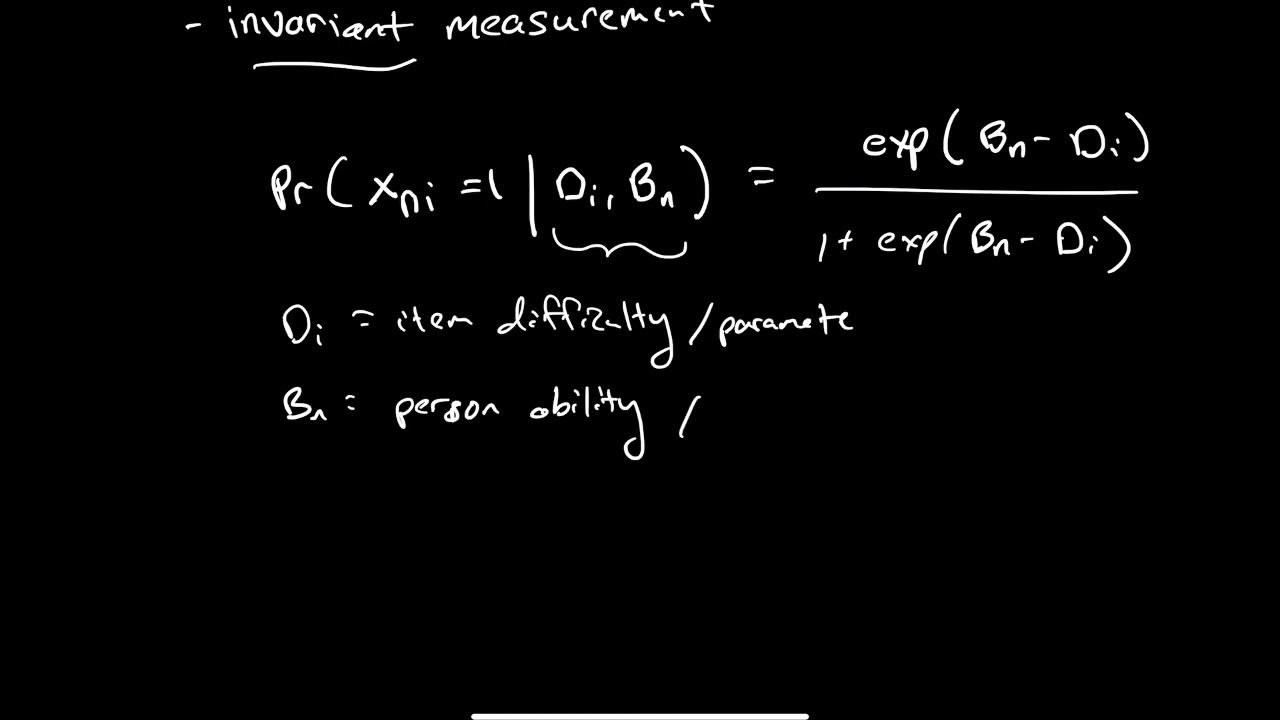 - invariant measurement
Pr( x_ni = 1 | D_i, B_n ) = exp( B_n - D_i ) / 1 + exp( B_n - D_i )
D_i = item difficulty / paramete
B_n = person ability /